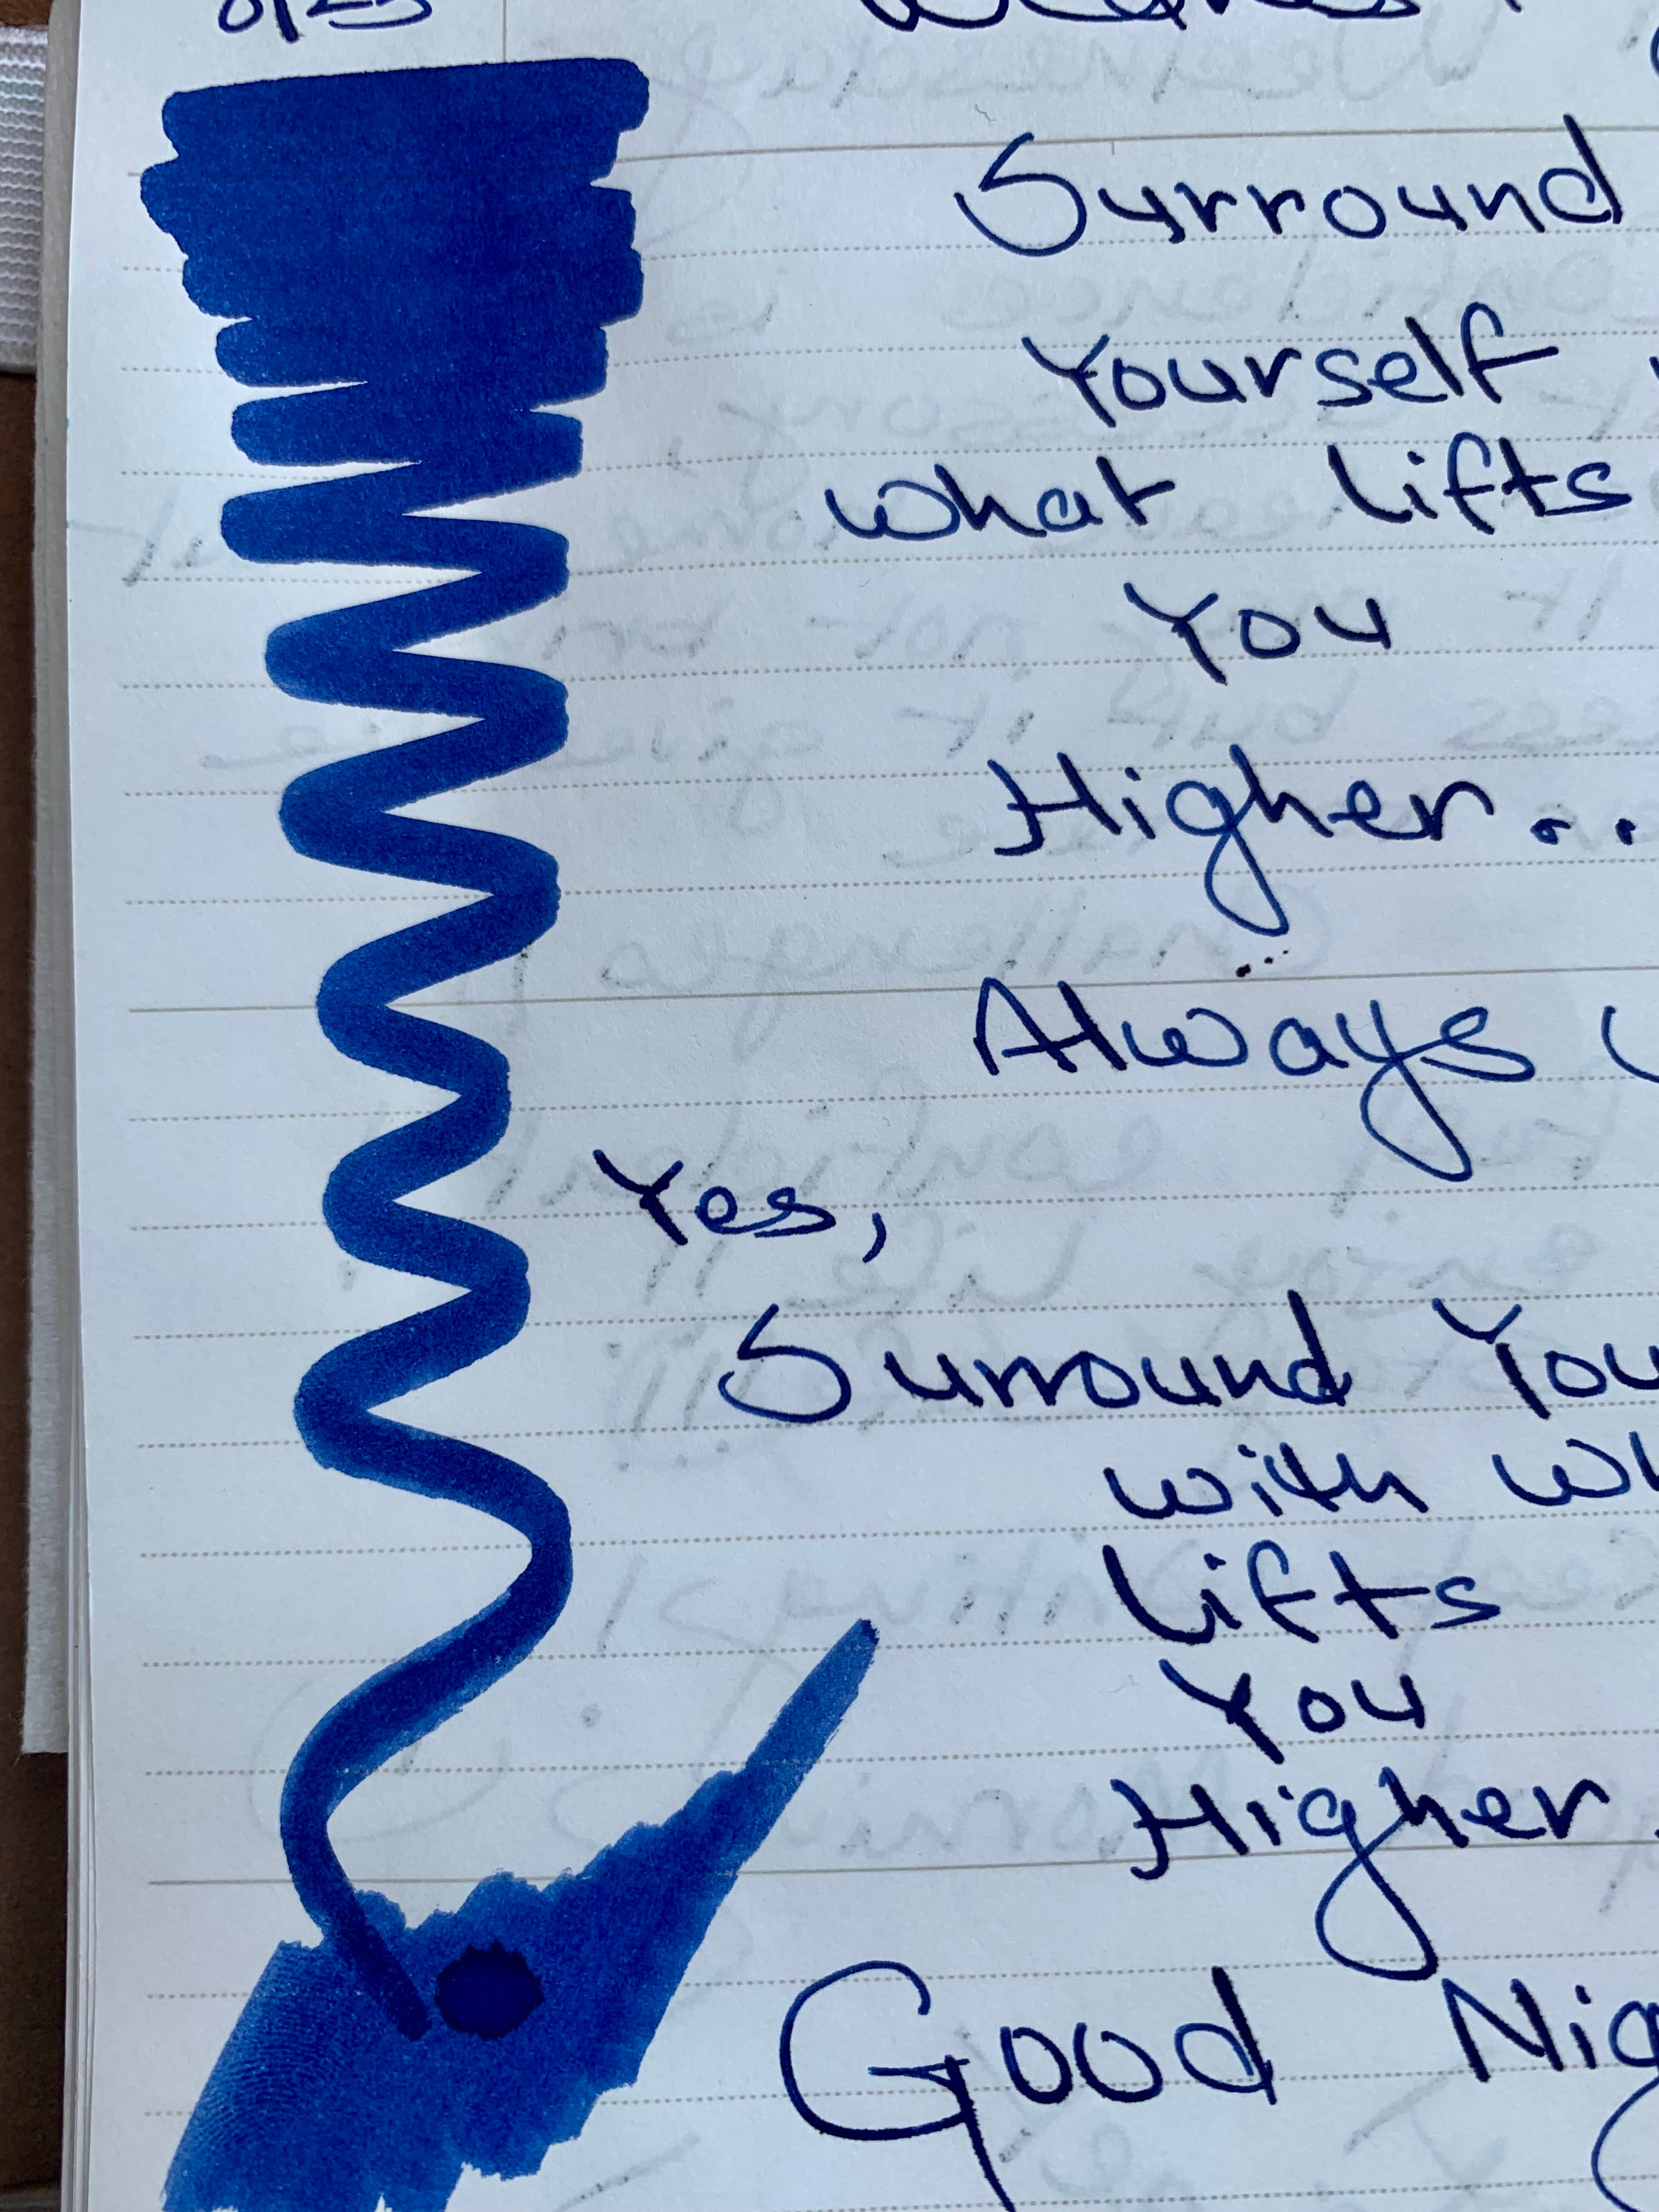 Surround
Yourself
what lifts
You
Higher..
Always
Yes,
Surround You
with
Lifts
You
Higher.
Good